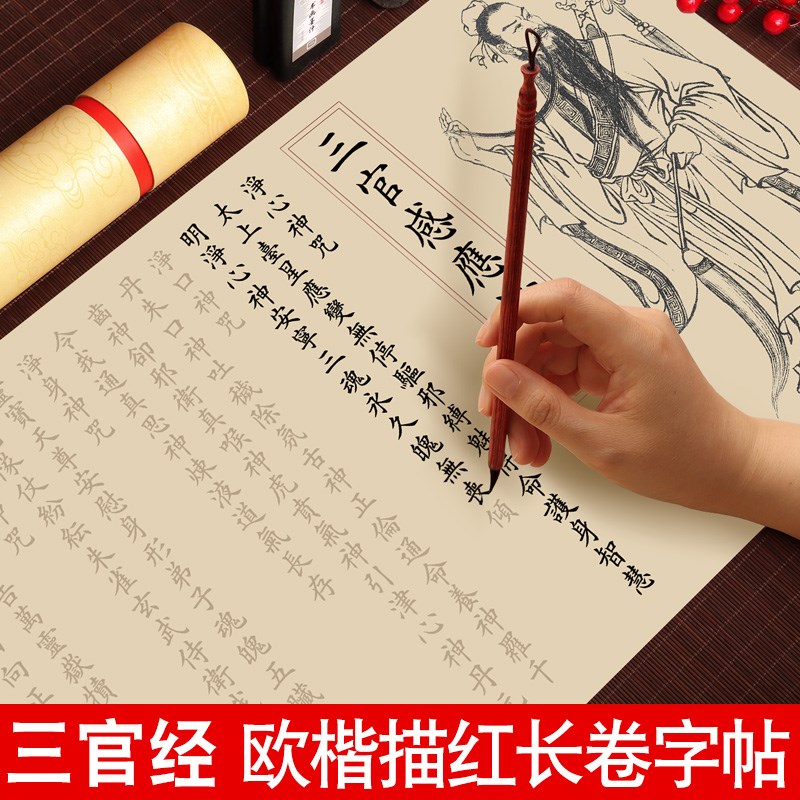 三官感應
淨心神咒
太上臺星應變無停驅邪縛魅保命護身智慧
明淨心神安寧三魂永久魄無喪傾
淨口神咒
丹朱口神吐穢除氛舌神正倫通命養神羅千
齒神卻邪衛真喉神虎賁氣神引津心神丹元
令我通真思神煉液道氣長存
淨身神咒
靈寶天尊安慰身形弟子魂魄五臟
仗紛紜朱雀玄武侍衛我
咒
告萬靈嶽瀆
向正
三官经 欧楷描红长卷字帖